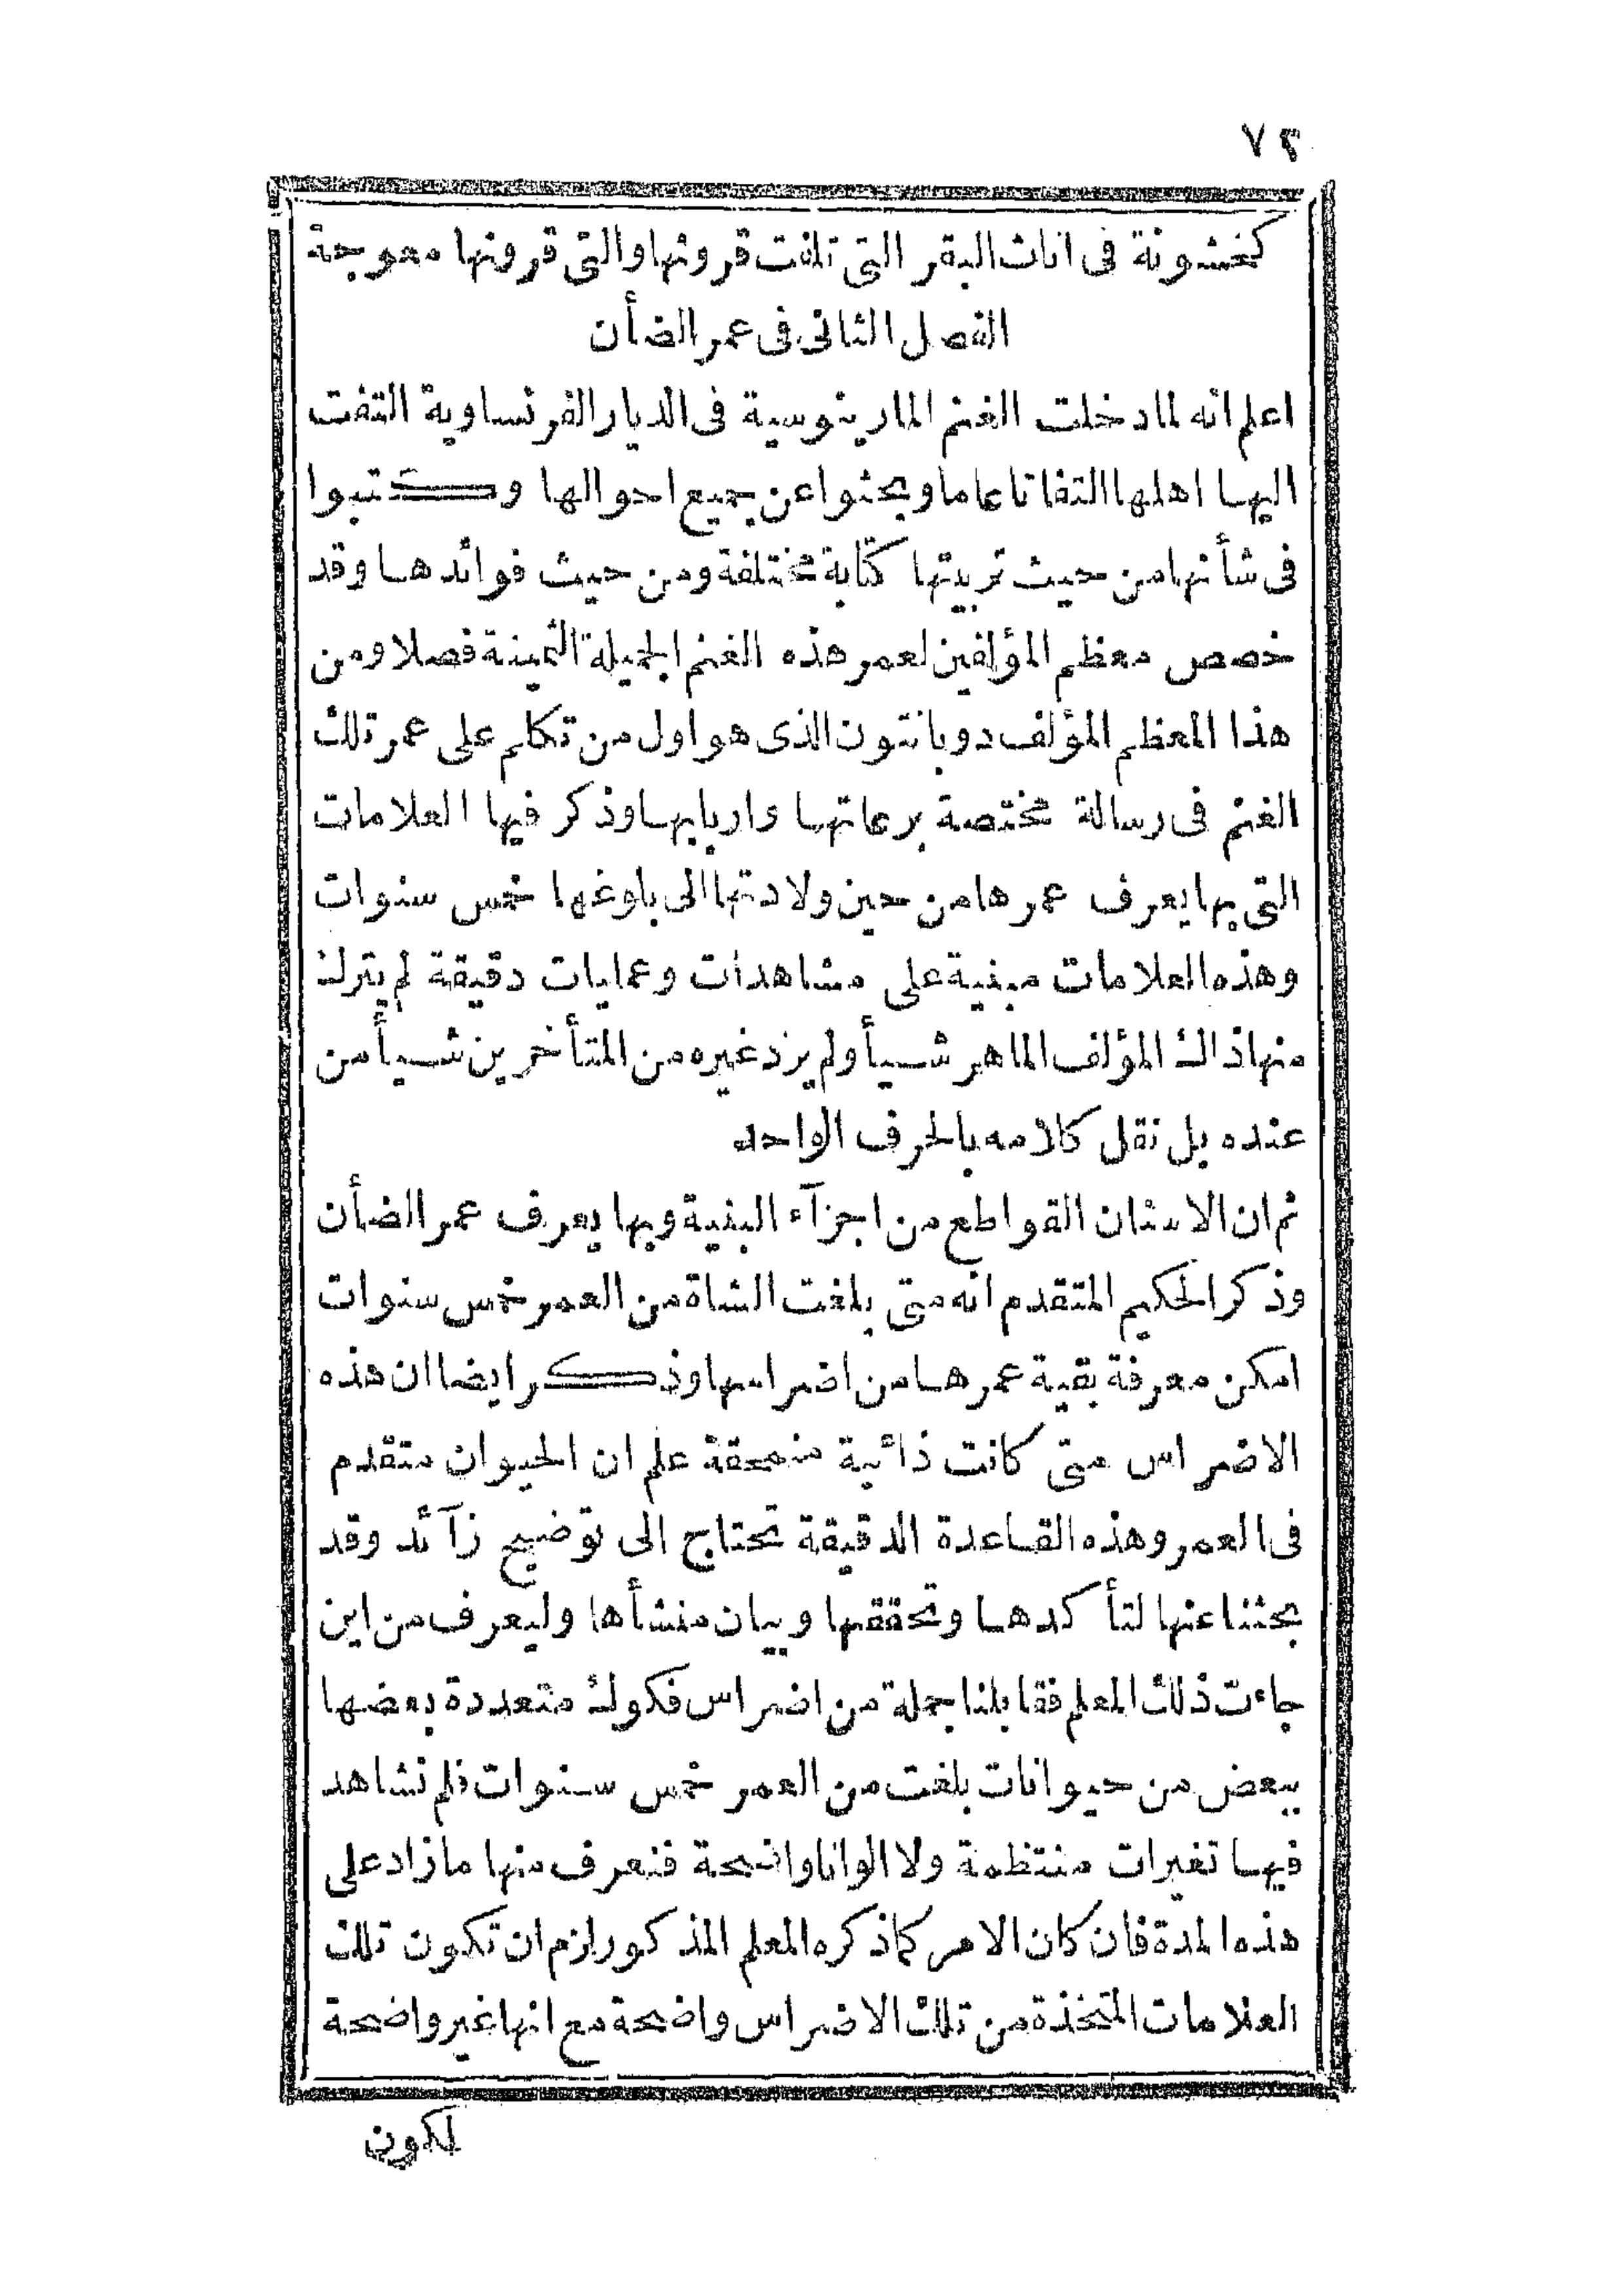 ٧٢
كخشونة فى اناث البقر التى تلفت قرونها والتى قرونها معوجة
الفصل الثانى فى عمر الضأن
اعلم انه لما دخلت الغنم المارينوسية فى الديار الفرنساوية التفت
اليها اهلها التفاتا عاما وبحثوا عن جميع احوالها وكتبوا
فى شأنها من حيث تربيتها كتابة مختلفة ومن حيث فوائدها وقد
خصص معظم المؤلفين لعمر هذه الغنم الجميلة الثمينة فصلا ومن
هذا المعظم المؤلف دوبانتون الذى هو اول من تكلم على عمر تلك
الغنم فى رسالة مختصة برعاتها واربابها وذكر فيها العلامات
التى بها يعرف عمرها من حين ولادتها الى بلوغها خمس سنوات
وهذه العلامات مبنية على مشاهدات وعمليات دقيقة لم يترك
منها ذاك المؤلف الماهر شيأ ولم يزد غيره من المتأخرين شيأ من
عنده بل نقل كلامه بالحرف الواحد
ثم ان الاسنان القواطع من اجزآء البنية وبها يعرف عمر الضأن
وذكر الحكيم المتقدم انه متى بلغت الشاة من العمر خمس سنوات
امكن معرفة بقية عمرها من اضراسها وذكر ايضا ان هذه
الاضراس متى كانت ذائبة منمحقة علم ان الحيوان متقدم
فى العمر وهذه القاعدة الدقيقة تحتاج الى توضيح زآئد وقد
بحثنا عنها لتأكدها وتحققها وبيان منشأها وليعرف من اين
جاءت ذلك المعلم فقابلنا جملة من اضراس فكوك متعددة بعضها
ببعض من حيوانات بلغت من العمر خمس سنوات فلم نشاهد
فيها تغيرات منتظمة ولا الوانا واضحة فنعرف منها ما زاد على
هذه المدة فان كان الامر كما ذكره المعلم المذكور لزم ان تكون تلك
العلامات المتخذة من تلك الاضراس واضحة مع انها غير واضحة
لكون